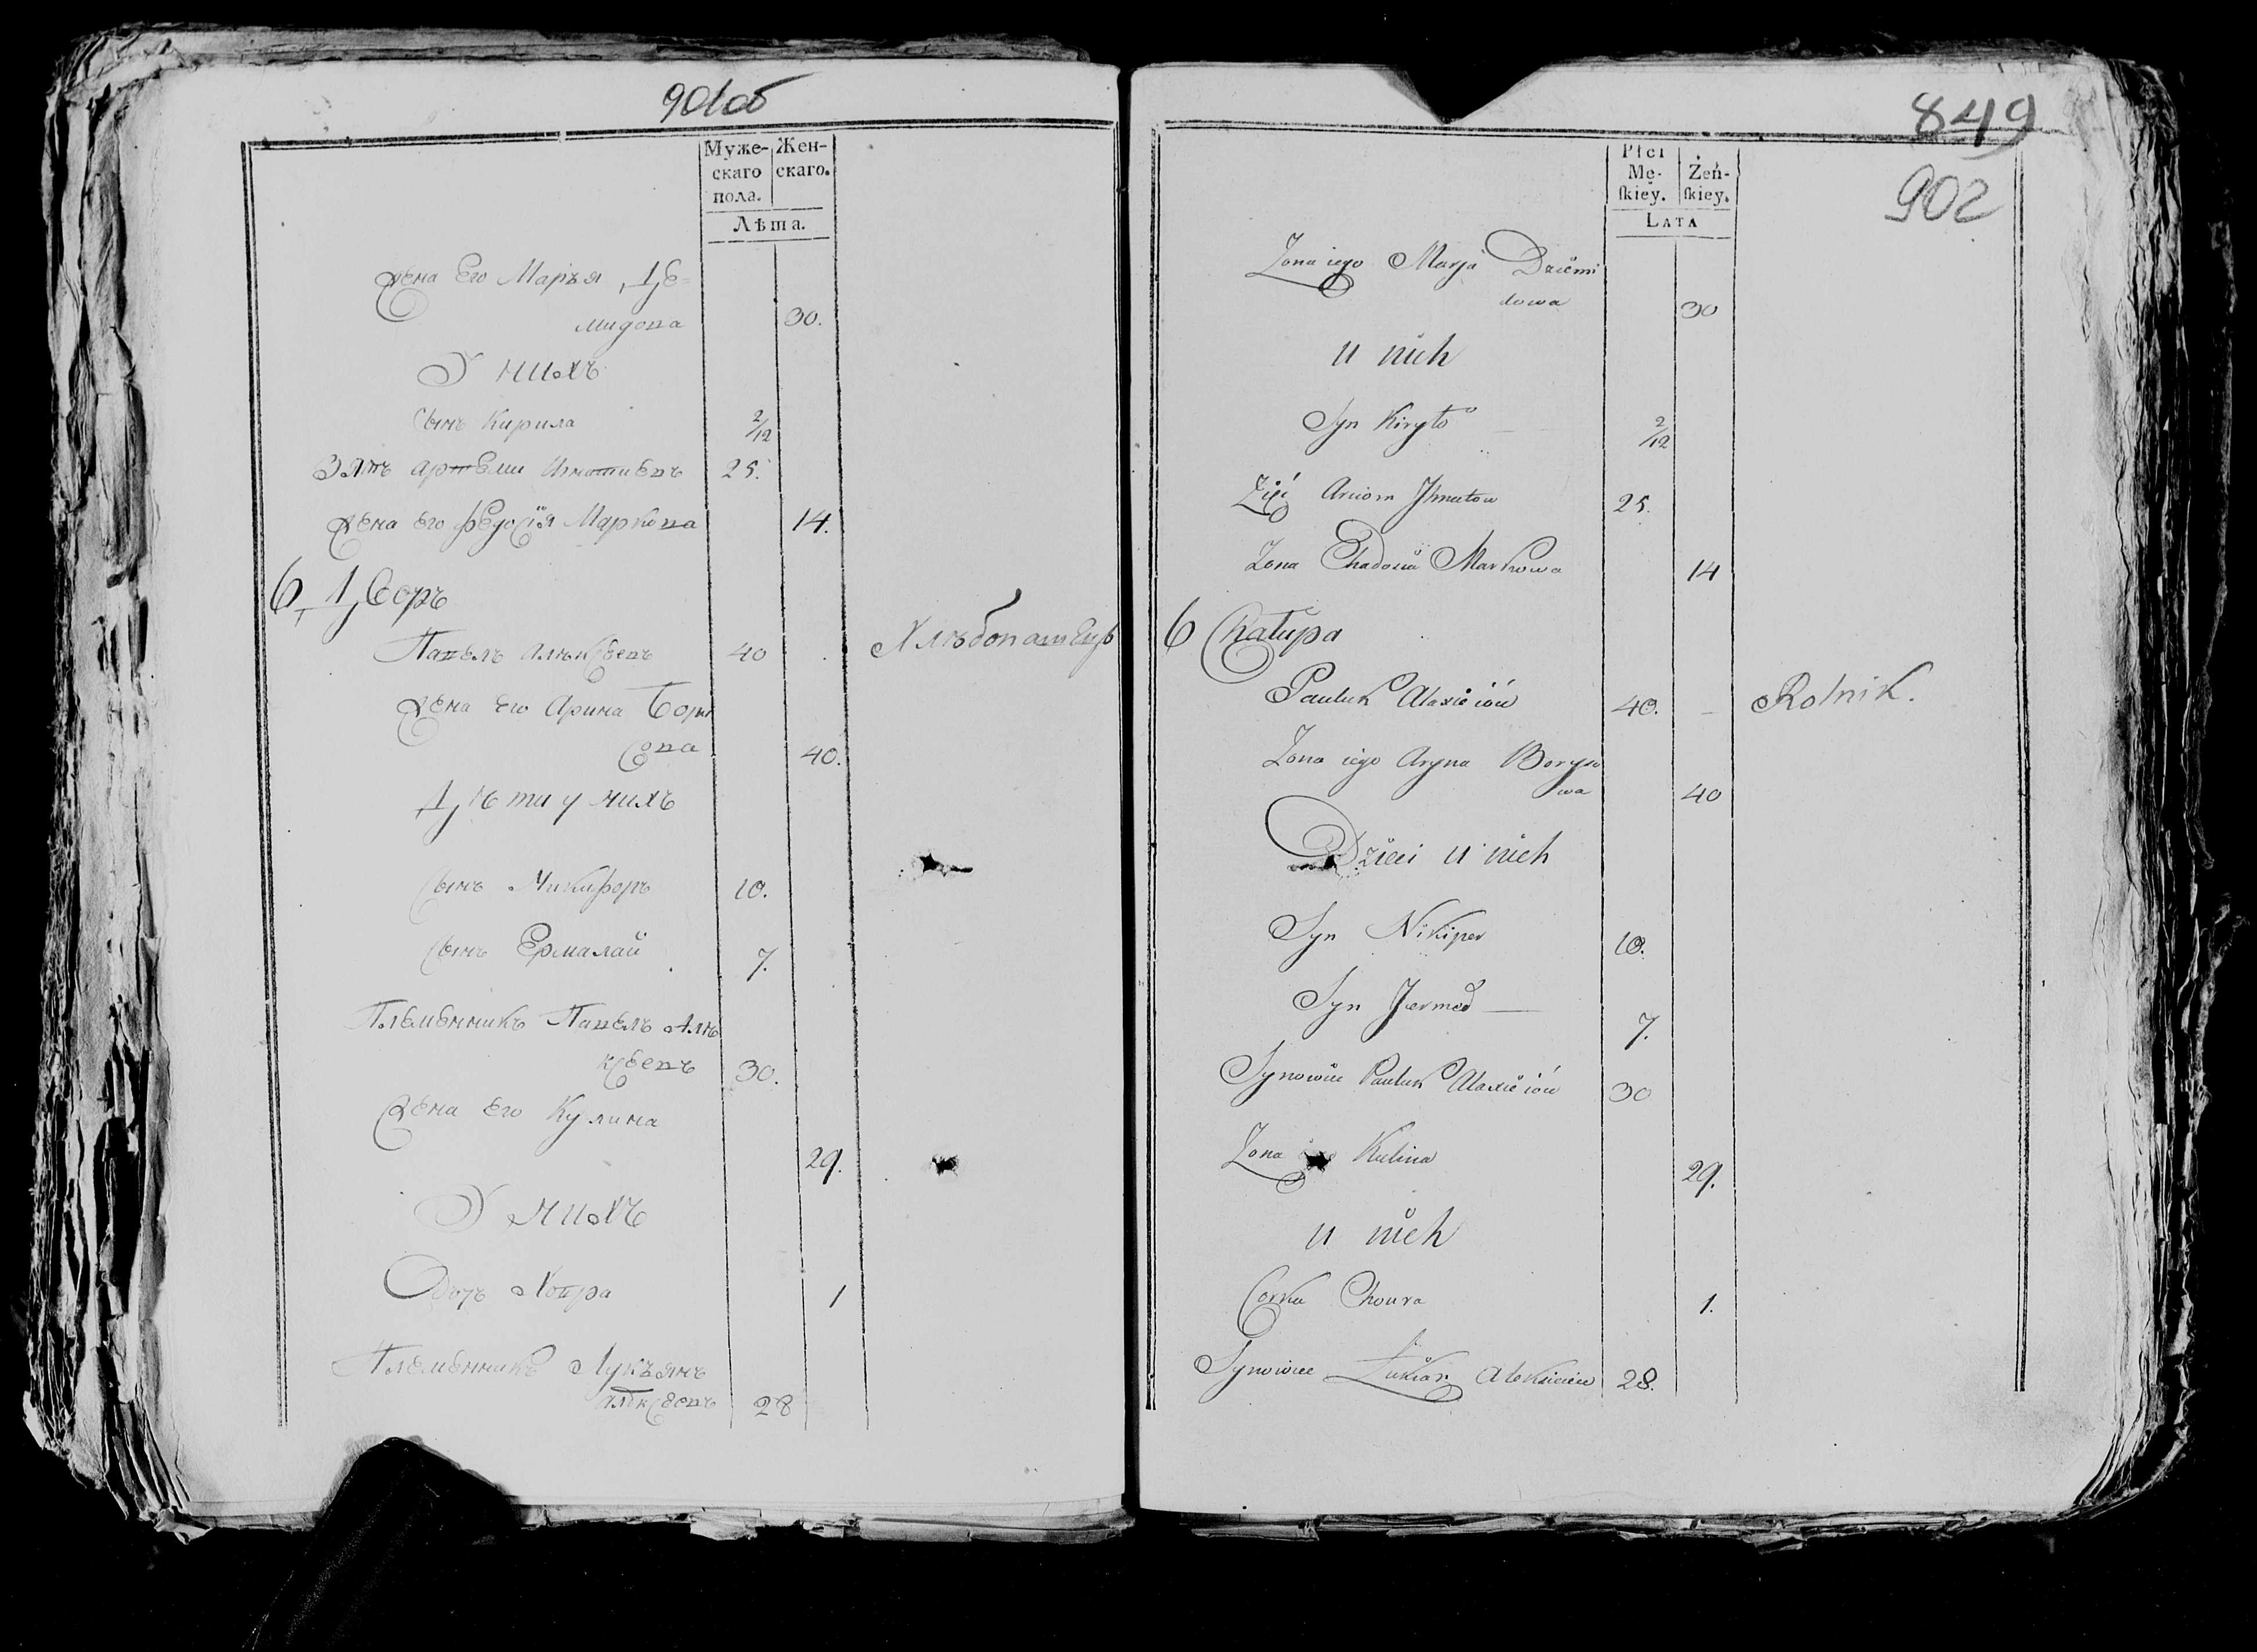 901об
Муже- Жен-
скаго скаго.
пола.
Лѣта.
Жена Его Марья Де=
мидова 30.
У нихъ
Сынъ Кирила 2/12
Зять Артеми Игнатиевъ 25.
Жена Его Федосїя Маркова 14.
6 Дворъ
Павелъ Алѣксеевъ 40 Хлѣбопашецъ
Жена Его Арина Бори
сова 40.
Дѣти у нихъ
Сынъ Микифоръ 10.
Сынъ Ермалай 7.
Племенникъ Павелъ Алѣ
ксеевъ 30.
Жена Его Кулина
29.
У нихъ
Дочь Ховра 1
Племенникъ Лукъянъ
Алѣксеевъ 28
849
902
Płci
Mę- Żeń-
skiey. skiey.
LATA
Zona iego Marja Dziemi
dowa 30
u nich
Syn Kiryło 2/12
Zięć Arciom Jhnatow 25.
Zona Chadosia Markowa 14
6 Chałupa
Pauluk Alaxieióu 40. Rolnik.
Zona iego Aryna Boryso
wa 40
Dzieci u nich
Syn Nikiper 10.
Syn Jermoł 7.
Synowiec Pauluk Alaxieióu 30
Zona Kulina 29.
u nich
Corka Choura 1.
Synowiec Łukian Alekseieiew 28.